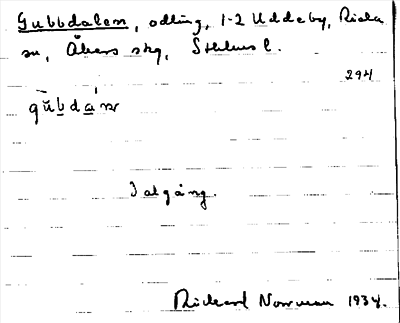 Gubbdalen, odling, 1-2 Uddeby, Riala
sn, Åkers skg, Sthlms l.
294
gŭbdanr
I atgång.
Rickard Norrman 1934.